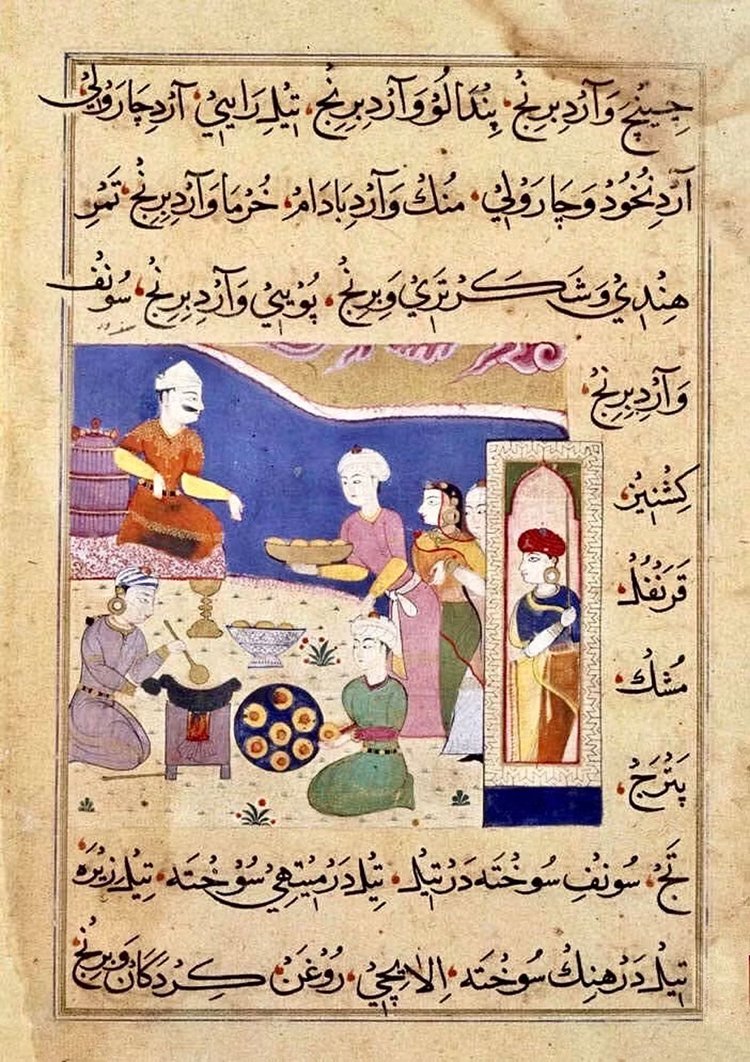 چینچ وَ آردِ بِرِنج، پِندالُو وَ آردِ بِرِنج، تیلِ رَایِیی، آردِ چارَولی
آردِ نُخُود وَ چارَولی، مُنگ وَ آردِ بادام، خُرما وَ آردِ بِرِنج، تَمَرِ
هِندِی وَ شَکَر تَری وَ بِرِنج، پُویِیی وَ آردِ بِرِنج، سُونف
وَ آردِ بِرِنج
کِشنِیز،
قَرَنفُل،
مُشک،
پَترَج،
تَج، سُونفِ سُوختَه دَر تیل، تیل دَر میتهی سُوختَه، تیلِ زیرَه
تیل دَر هِنگ سُوختَه، اِلایچی، رُوغَن کِردَکان وَ بِرِنج